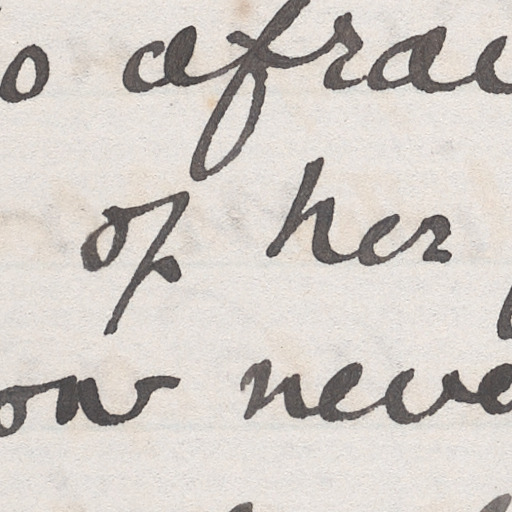 o afrai
of her
ow neve